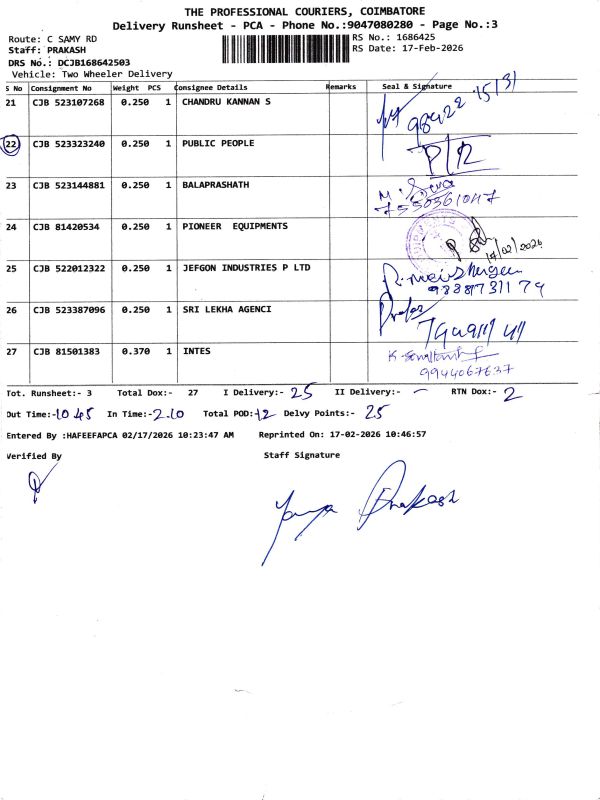 THE PROFESSIONAL COURIERS, COIMBATORE
Delivery Runsheet - PCA - Phone No.:9047080280 - Page No.:3
Route: C SAMY RD
Staff: PRAKASH
DRS No.: DCJB168642503
Vehicle: Two Wheeler Delivery
RS No.: 1686425
RS Date: 17-Feb-2026
S No Consignment No Weight PCS Consignee Details Remarks Seal & Signature
21 CJB 523107268 0.250 1 CHANDRU KANNAN S 98422 15131
22 CJB 523323240 0.250 1 PUBLIC PEOPLE P/R
23 CJB 523144881 0.250 1 BALAPRASHATH
24 CJB 81420534 0.250 1 PIONEER EQUIPMENTS 17/02/2026
25 CJB 522012322 0.250 1 JEFGON INDUSTRIES P LTD
26 CJB 523387096 0.250 1 SRI LEKHA AGENCI
27 CJB 81501383 0.370 1 INTES 9944067637
Tot. Runsheet:- 3 Total Dox:- 27 I Delivery:- 25 II Delivery:- – RTN Dox:- 2
Out Time:- 10 45 In Time:- 2.10 Total POD:- 12 Delvy Points:- 25
Entered By :HAFEEFAPCA 02/17/2026 10:23:47 AM Reprinted On: 17-02-2026 10:46:57
Verified By Staff Signature
Prakash